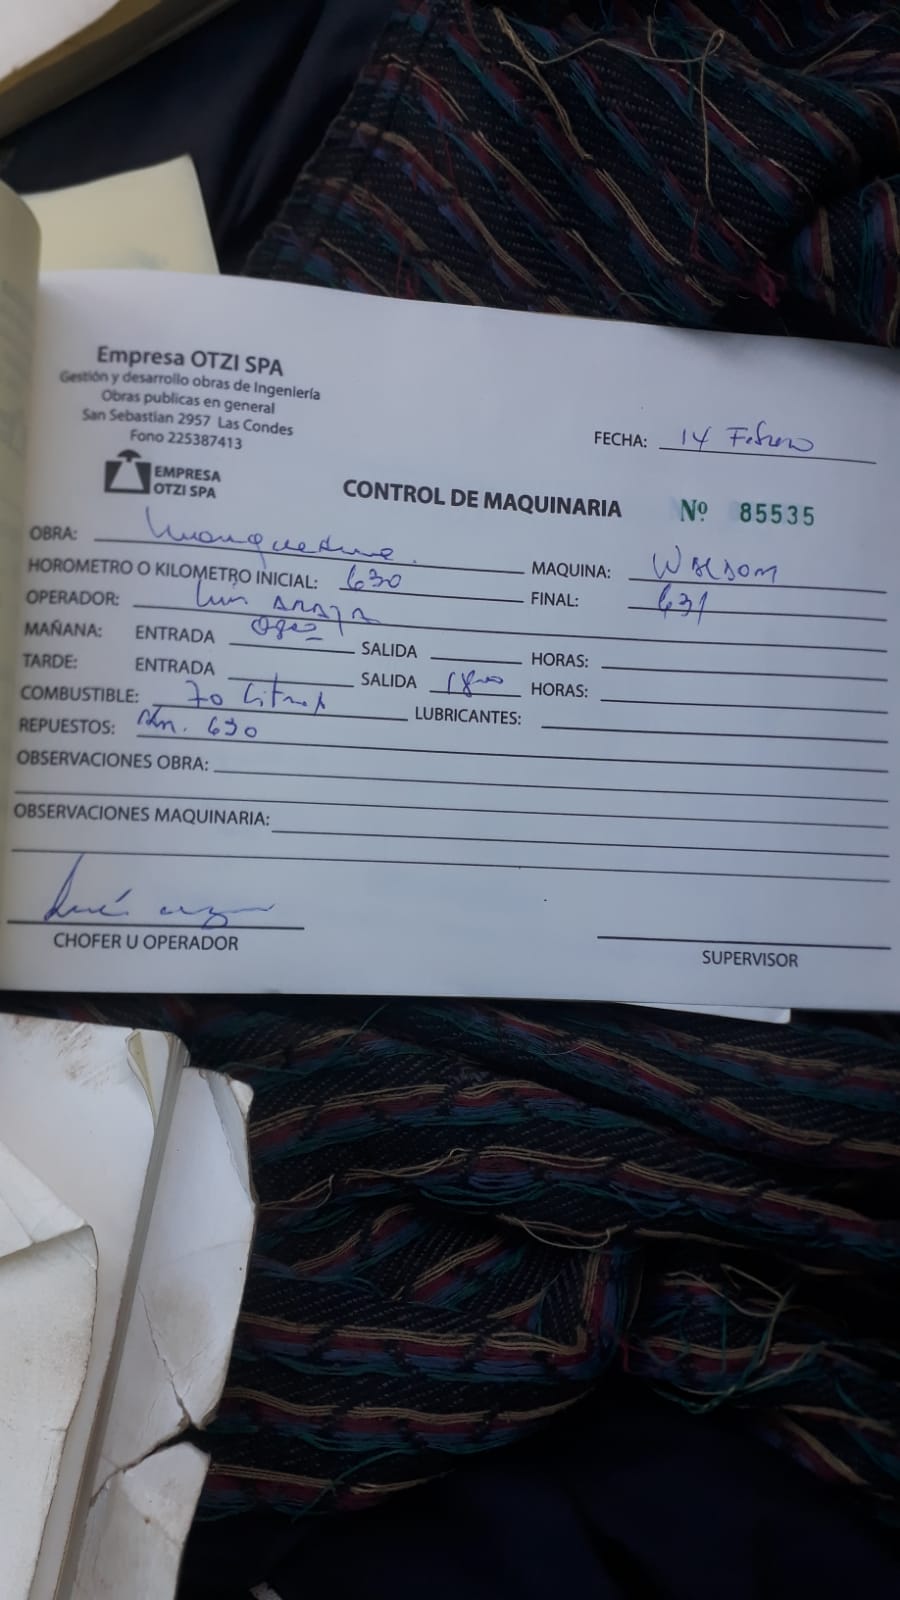 Empresa OTZI SPA
Gestión y desarrollo obras de Ingeniería
Obras publicas en general
San Sebastian 2957 Las Condes
Fono 225387413
EMPRESA
OTZI SPA
FECHA: 14 Febrero
CONTROL DE MAQUINARIA Nº 85535
OBRA: MAQUINA:
HOROMETRO O KILOMETRO INICIAL: 630 FINAL: 631
OPERADOR: Luis ARAYA
MAÑANA: ENTRADA SALIDA HORAS:
TARDE: ENTRADA SALIDA 1800 HORAS:
COMBUSTIBLE: 70 Litros LUBRICANTES:
REPUESTOS: 630
OBSERVACIONES OBRA:
OBSERVACIONES MAQUINARIA:
CHOFER U OPERADOR
SUPERVISOR